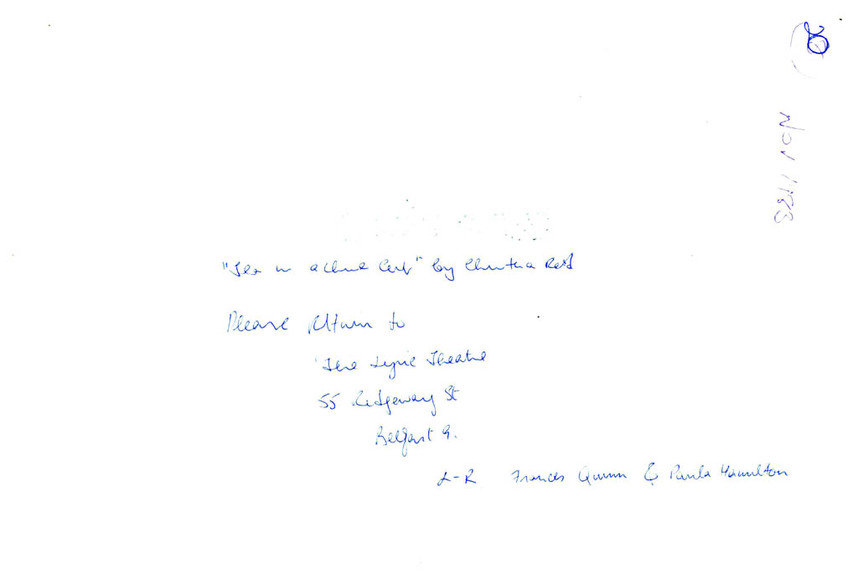 20
Nov 1983
"Tea in a China Cup" by Christina Reid
Please return to
The Lyric Theatre
55 Ridgeway St
Belfast 9.
L-R Frances Quinn & Paula Hamilton